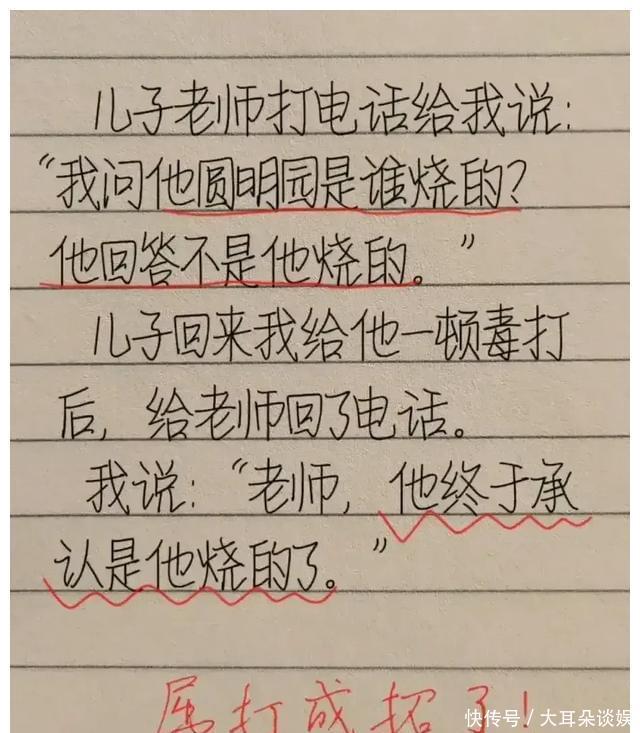 儿子老师打电话给我说:
“我问他圆明园是谁烧的?
他回答不是他烧的。”
儿子回来我给他一顿毒打
后,给老师回了电话。
我说:“老师,他终于承
认是他烧的了。”
属打成招了!
快传号/大耳朵谈娱